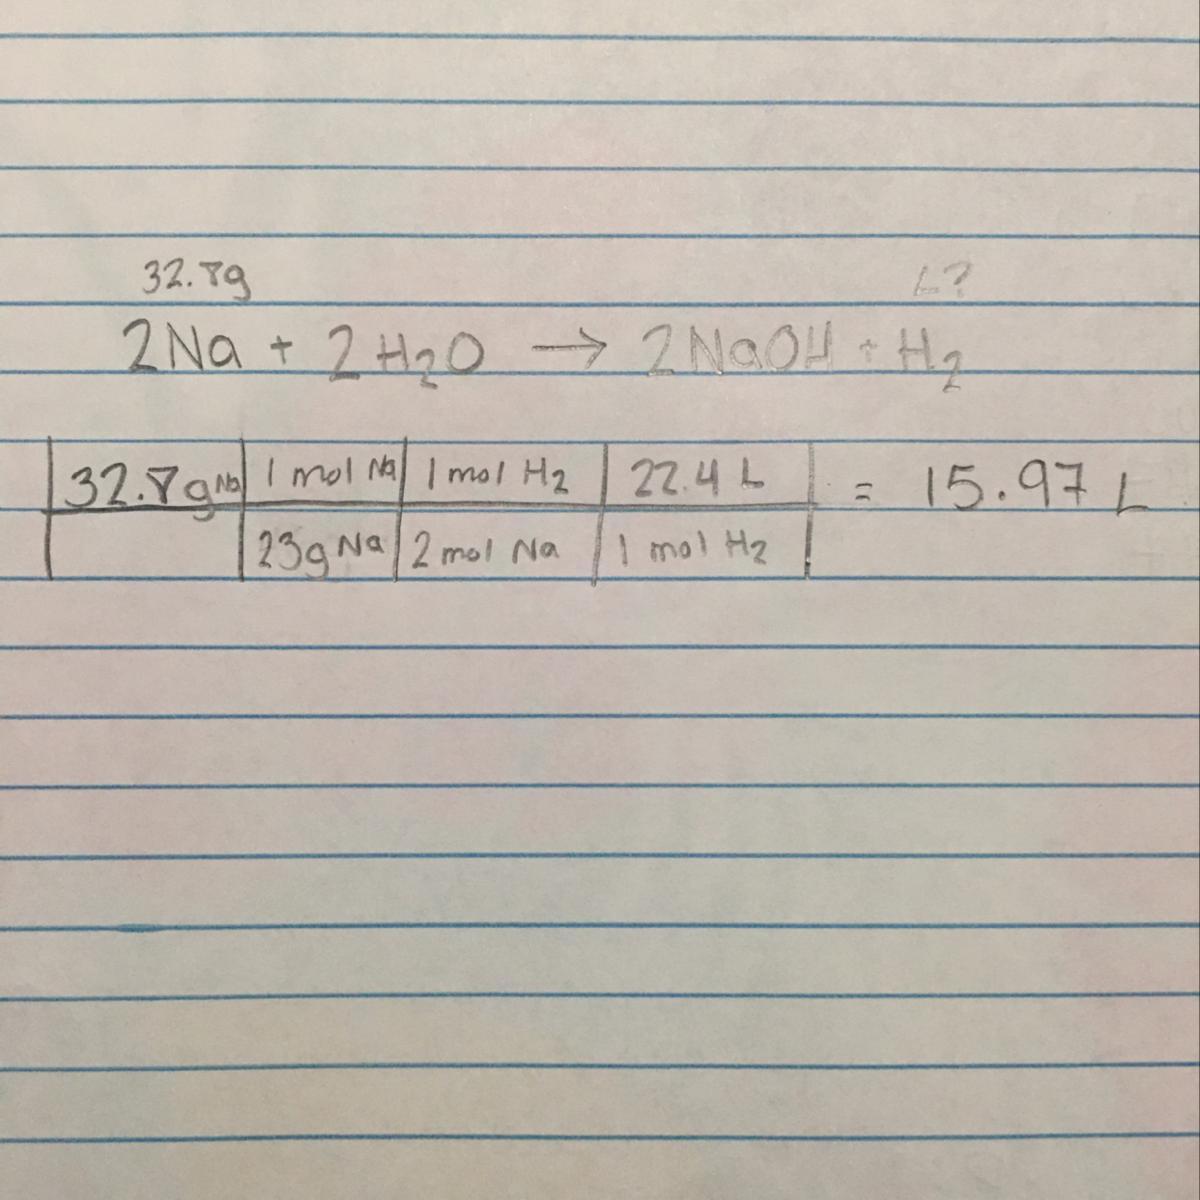 32.8g L?
2Na + 2H₂O → 2NaOH + H₂
32.8g Na | 1 mol Na | 1 mol H₂ | 22.4 L = 15.97 L
23g Na | 2 mol Na | 1 mol H₂